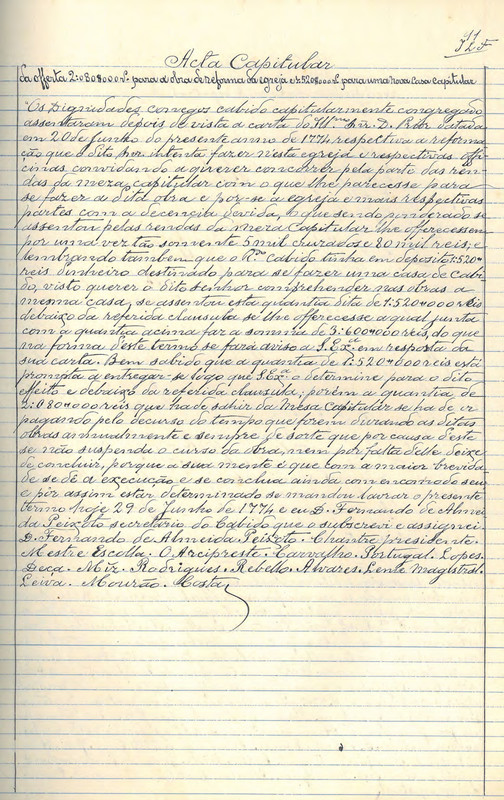 Acta Capitular
da offerta 2:080#000 rs para a obra de reforma da egreja e 1:520#000 rs para uma nova Casa Capitular
"Os Dignidades conegos cabido capitularmente congregado
assentaram depois de vista a carta do Ill.mo Snr. D. Prior datada
em 20 de junho do presente anno de 1774 respectiva a reforma-
ção que o dito Snr intenta fazer nesta egreja e respectivas offi-
cinas convidando a querer concorrer pela parte das ren-
das da meza capitular com o que lhe parecesse para
se fazer a dita obra e por-se a egreja e mais respectivas
partes com a decencia devida, o que sendo ponderado se
assentou pelas rendas da meza Capitular lhe offerecessem
por uma vez tão somente 5 mil cruzados e 80 mil reis; e
lembrando tambem que o R.do Cabido tinha em deposito 1:520#
reis dinheiro destinado para se fazer uma casa de Cabi-
do, visto querer o dito senhor comprehender nas obras a
mesma casa, se assentou esta quantia dita de 1:520#000 reis
debaixo da referida clausula se lhe offerecesse a qual junta
com a quantia acima faz a somma de 3:600#000 reis, do que
na forma d'este termo se fará aviso a S. Ex.a em resposta da
sua carta. Bem sabido que a quantia de 1:520#000 reis está
prompta a entregar-se logo que S. Ex.a o determine para o dito
effeito e debaixo da referida clausula; porém a quantia de
2:080#000 reis que ha de sahir da Mesa Capitular se ha de ir
pagando pelo decurso do tempo que forem durando as ditas
obras annualmente e sempre de sorte que por causa d'este
se não suspenda o curso da obra, nem por falta d'elle deixe
de concluir, porque a sua mente é que com a maior brevida-
de se dê a execução e se conclua ainda com encomodo seu
e por assim estar determinado se mandou lavrar o presente
termo hoje 29 de junho de 1774 e eu D. Fernando de Almei-
da Peixoto secretario do Cabido que o subscrevi e assignei
D. Fernando de Almeida Peixoto. Chantre presidente.
Mestre Escolla. O Arcipreste. Carvalho. Portugal. Lopes.
Deça. Miz. Rodrigues. Rebello. Alvares. Lente Magistral.
Leiva. Mourão. Costa